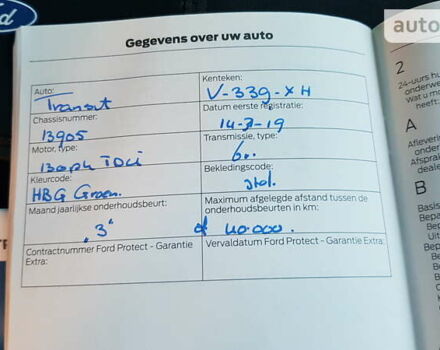 Ford
auto
Gegevens over uw auto
Auto:
Transit
Kenteken:
V-339-XH
Chassisnummer:
13905
Datum eerste registratie:
14-3-19
Motor, type:
130ph TDCi
Transmissie, type:
6v.
Kleurcode:
HBG Groen.
Bekledingscode:
stof.
Maand jaarlijkse onderhoudsbeurt:
"3"
Maximum afgelegde afstand tussen de
onderhoudsbeurten in km:
of 40.000.
Contractnummer Ford Protect - Garantie
Extra:
Vervaldatum Ford Protect - Garantie
Extra:
2
24-uurs hu
onderweg
Wat u mo
heeft
A
Aflever
onder
Afspra
deale
B
Basis
Bepa
Bepa
Uit
Bep
Be
Be
Be
Be